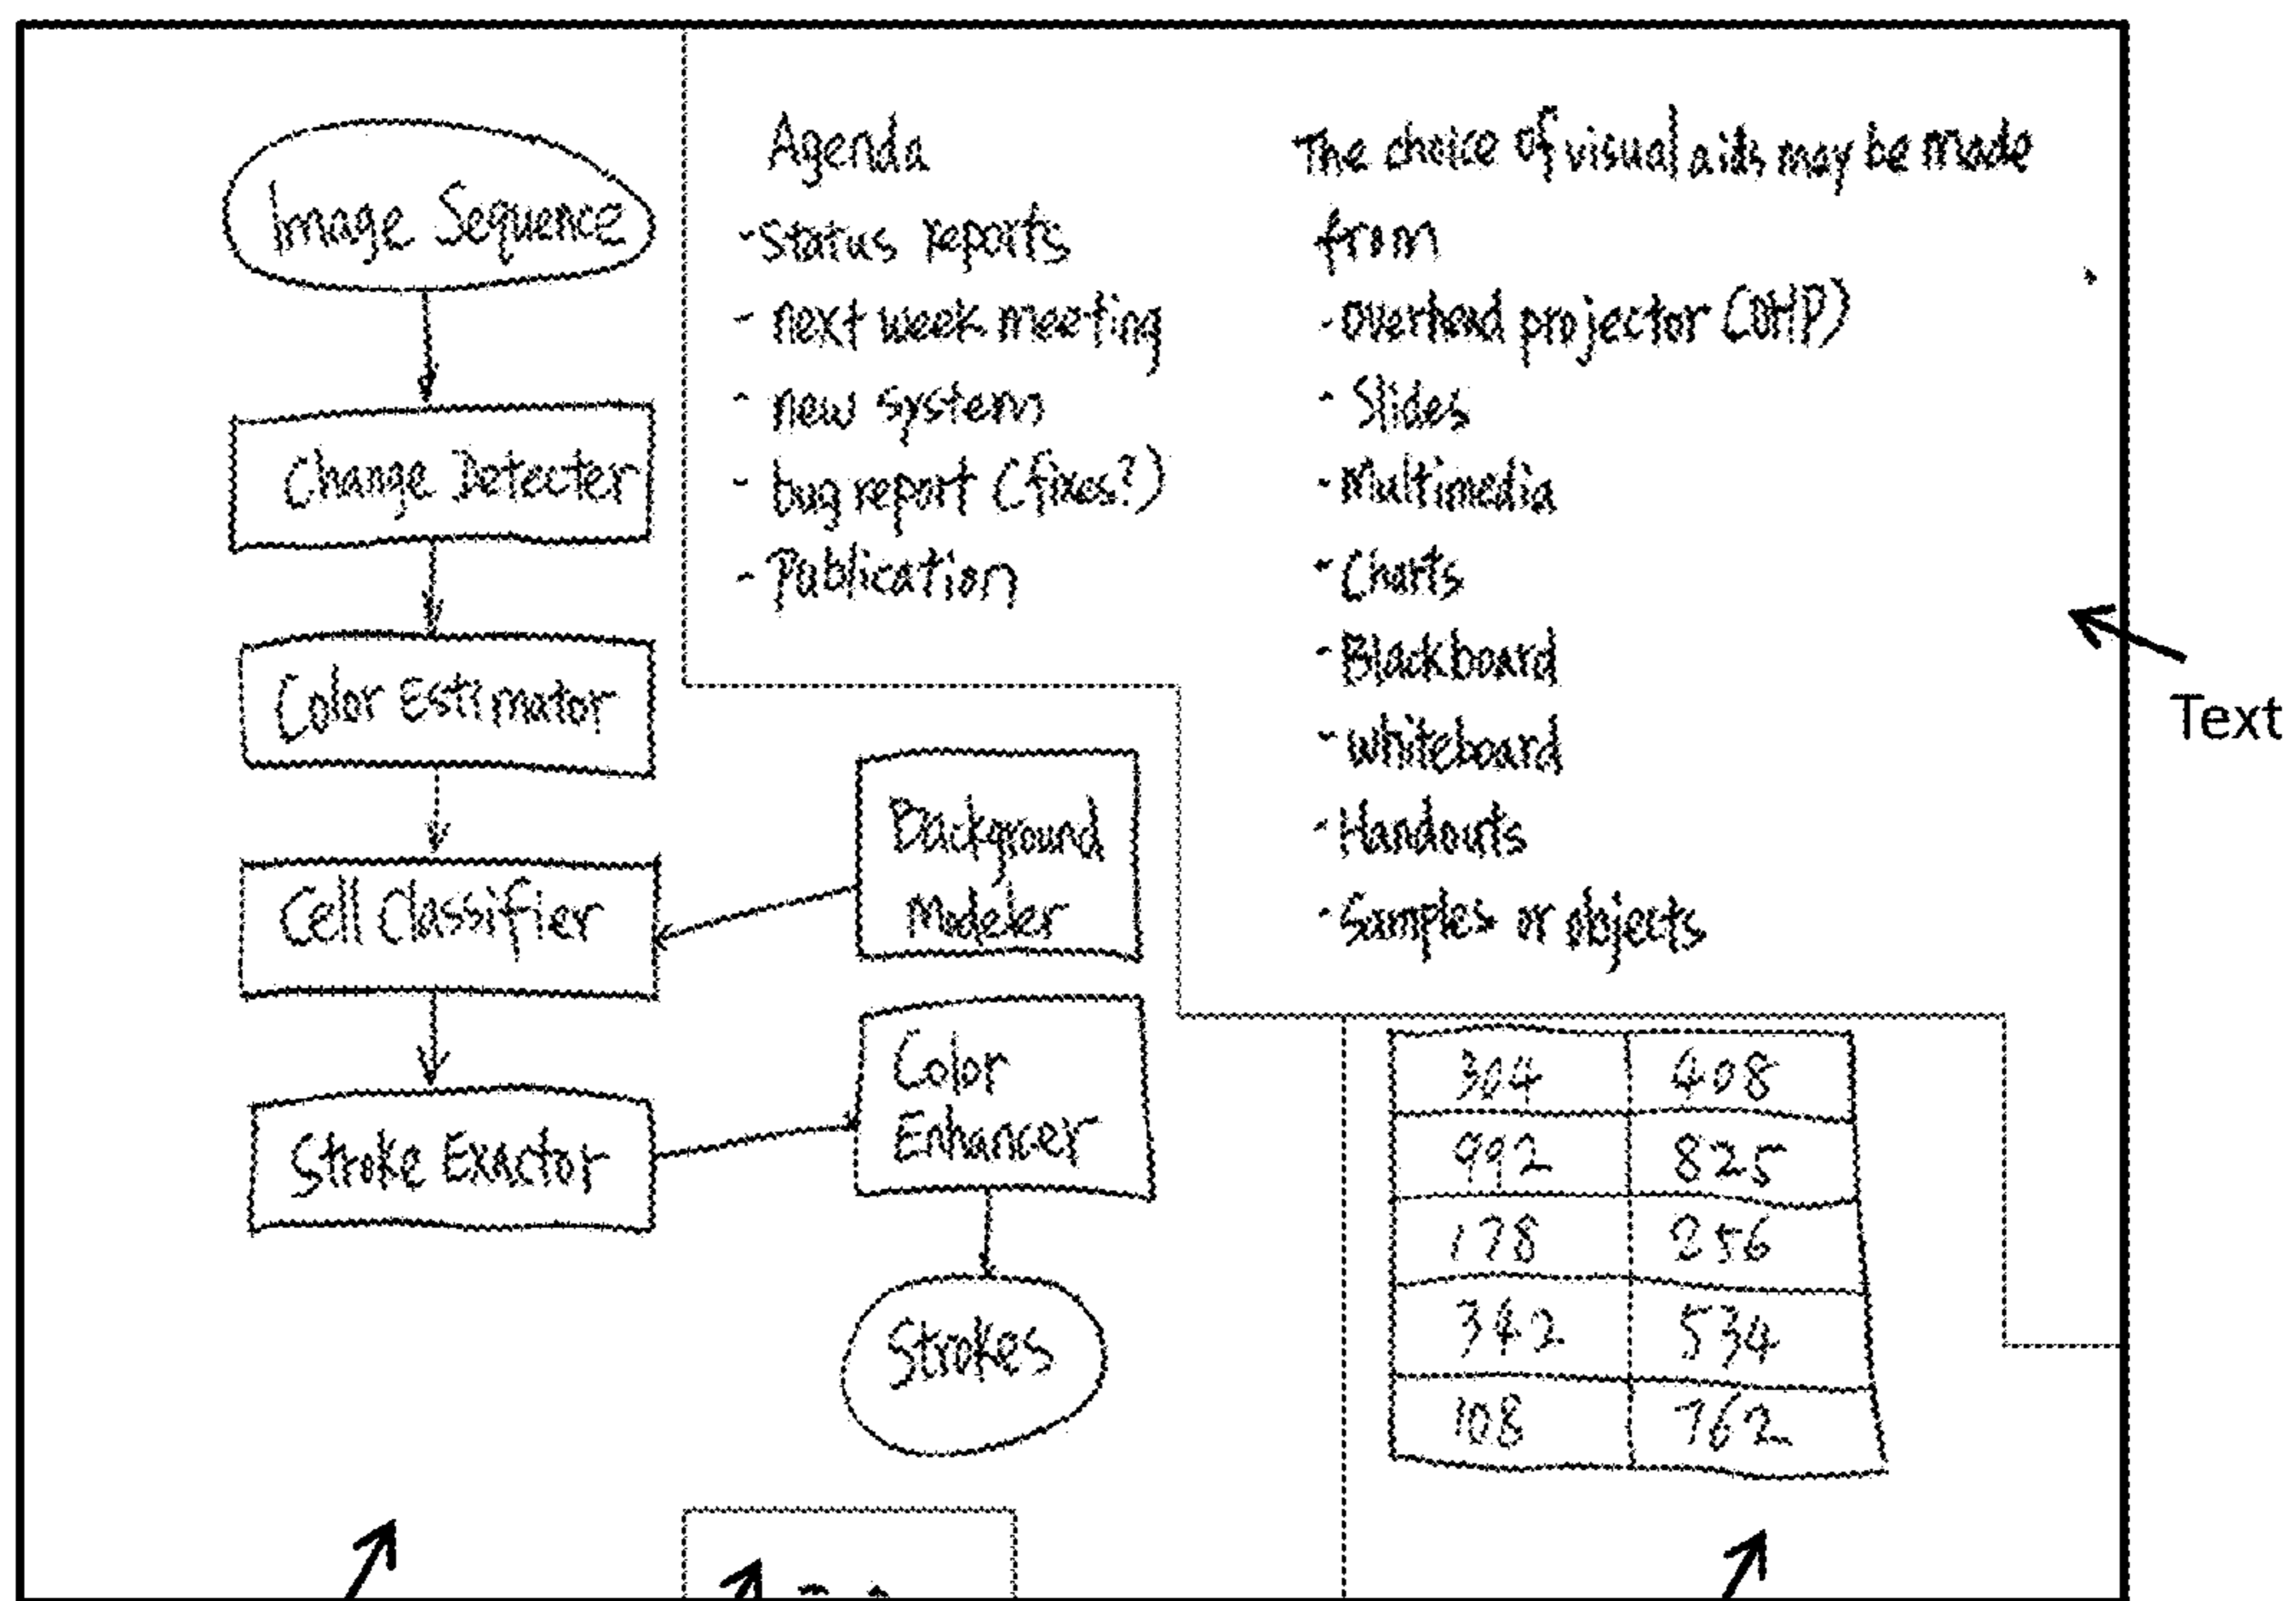 Image Sequence
Change Detecter
Color Estimator
Cell Classifier
Background
Modeler
Stroke Exactor
Color
Enhancer
Strokes
Agenda
-Status reports
- next week meeting
- new system
- bug report (fixes?)
- Publication
The choice of visual aids may be made
from
-overhead projector (OHP)
- Slides
-Multimedia
-Charts
-Blackboard
-whiteboard
-Handouts
-Samples or objects
Text
304 408
992 825
178 256
342 534
108 762